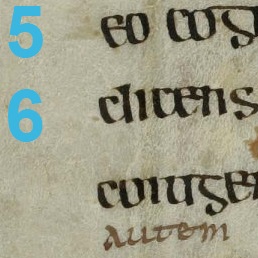 5 eo cog
6 dicens
conuge
autem